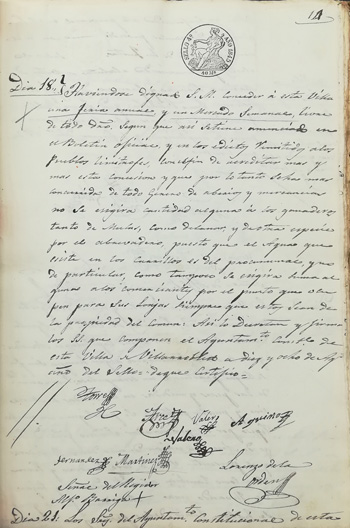 14
SELLO 4º AÑO 1845
40 MS
Dia 18. Haviendose dignado S. M. conceder á esta Villa
una feria annual y un Mercado Semanal, livre
de todo daño, Segun que asi Se tiene anunciado en
el Boletin oficial, y en los edictos remitidos á los
Pueblos limitrofes, con el fin de acreditar mas y
mas esta concesion y que por lo tanto Se haya mas
concurrida de todo Genero de abasto y mercancia
no Se exigirá cantidad alguna á los ganaderos
tanto de Mulas, como de lanar, y destinas especies
por el abrevadero, puesto que el Agua que
existe en los es del procomunal, y no
de particular, como tampoco Se exigirá Suma al
guna á los comerciantes por el punto que ocu
pen para Sus lonjas Siempre que estos Sean de
la propiedad del Comun. Asi lo Decretan y firma
los SS. que componen el Ayuntamto. Constl. de
esta Villa de Villarrobledo a Diez y ocho de Ag
del Sello = de que Certifico =
Torre
Valero Aquino
Hernandez Martinez Lorenzo de la
Señal del Regidor
Dia 21. Los Sres. del Ayuntamto. Constitucional de esta